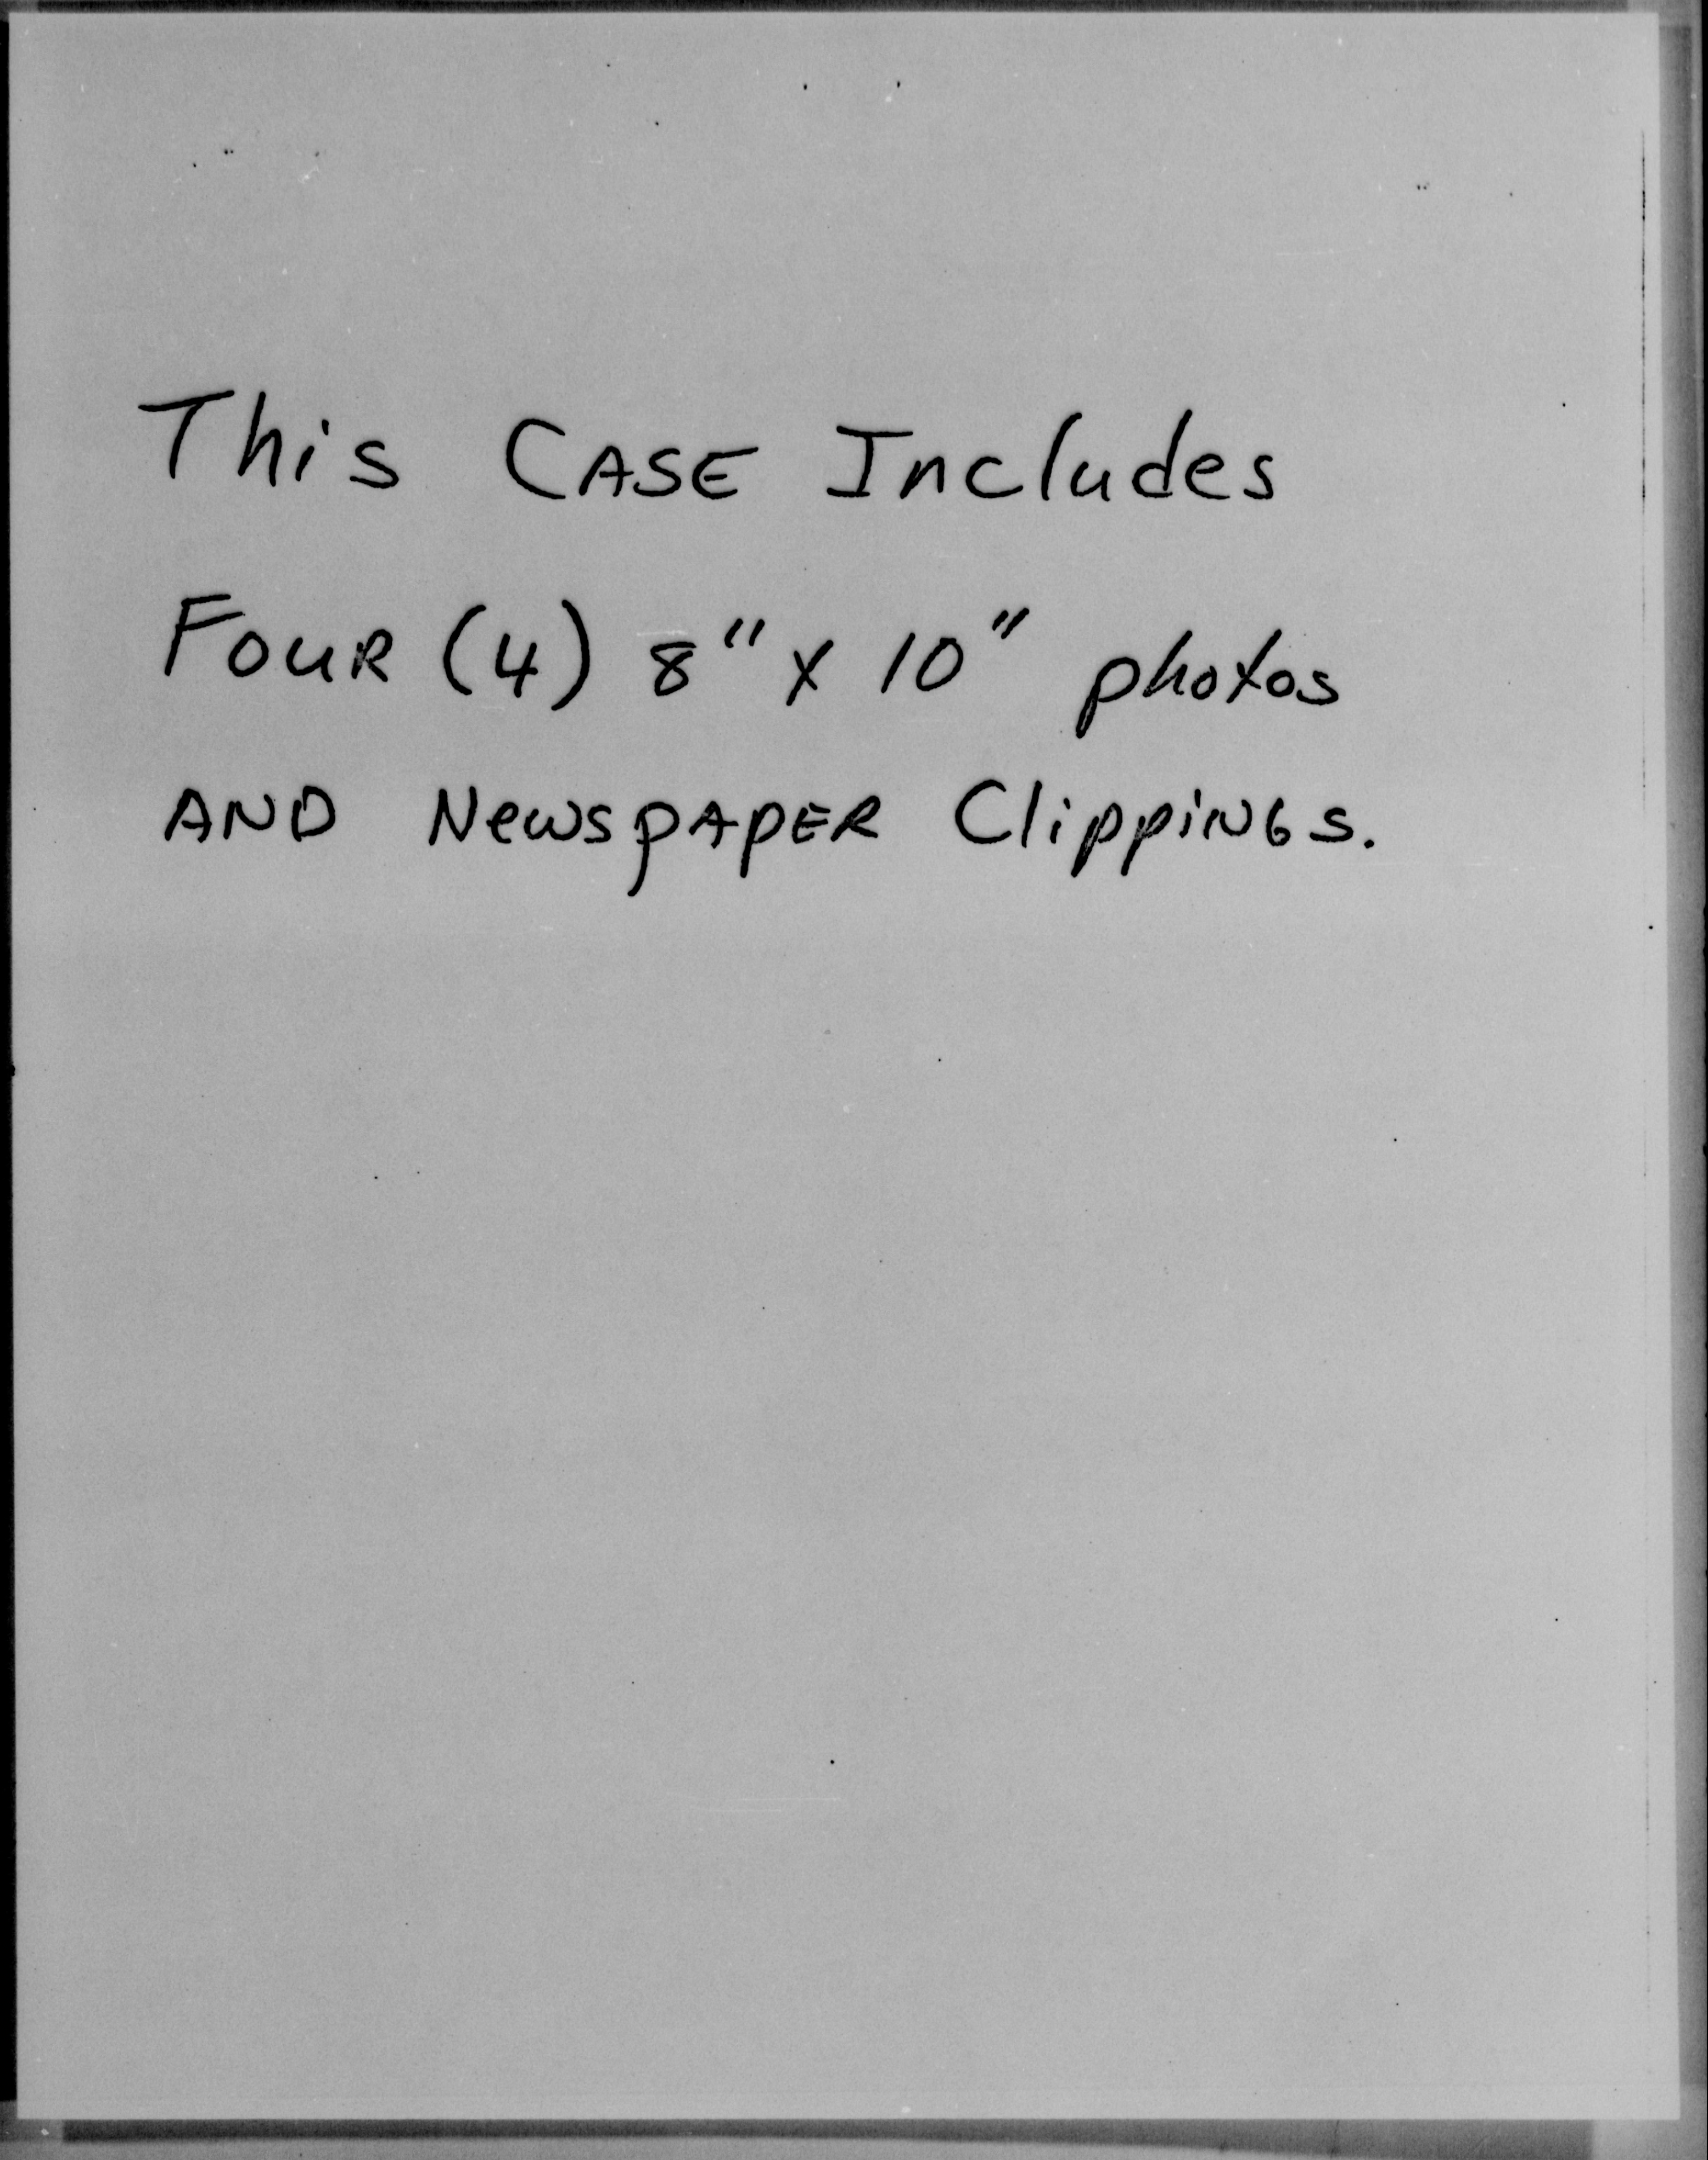 This CASE Includes
FOUR (4) 8" x 10" photos
AND NewspAPER ClippiNGs.